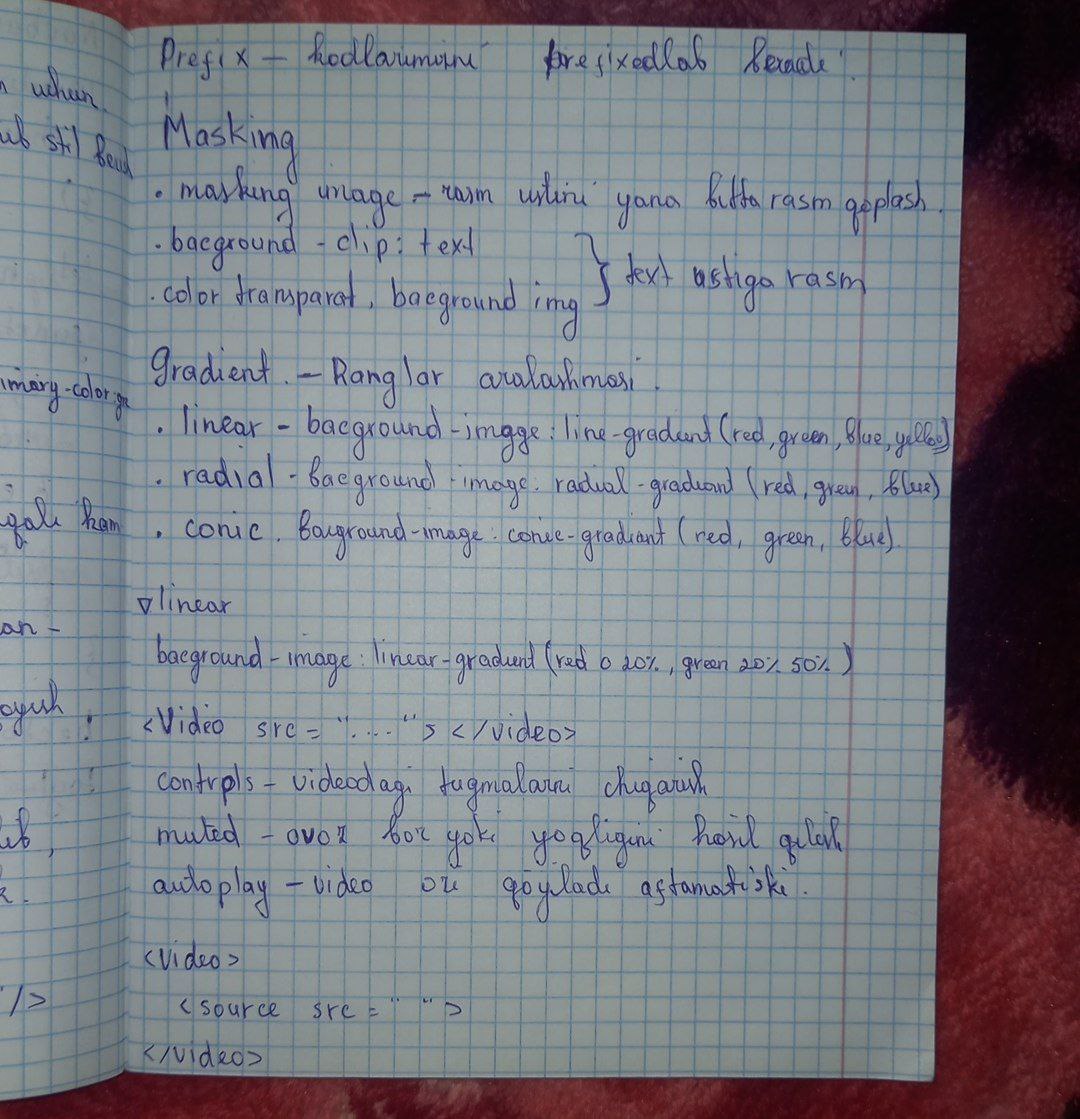 Prefix – kodlarimizni prefixedlab beradi.
uchun
ub stil beradi
Masking
. masking image – rasm ustini yana bitta rasm qoplash.
. bacground - clip: text
. color transparat, bacground img } text ostiga rasm
Gradient. – Ranglar aralashmasi.
imary-color:gr
. linear – bacground-image: line-gradient (red, green, blue, yellow)
. radial – bacground-image: radial-gradiant (red, green, blue)
qali ham
. conic. bacground-image: conic-gradiant (red, green, blue).
▽ linear
an –
bacground-image: linear-gradient (red 0 20%, green 20% 50%)
oyish
<Video src = "...."> </video>
controls – videodagi tugmalarni chiqarish
muted – ovoz bor yoki yoqligini hosil qilish
autoplay – video ozi qoyiladi aftamatiski.
<video>
/>
<source src = " ">
</video>